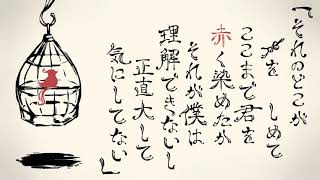 『それのどこが
を しめて
ここまで君を
赤く染めたか
それが僕は
理解できないし
正直大して
気にしてない』